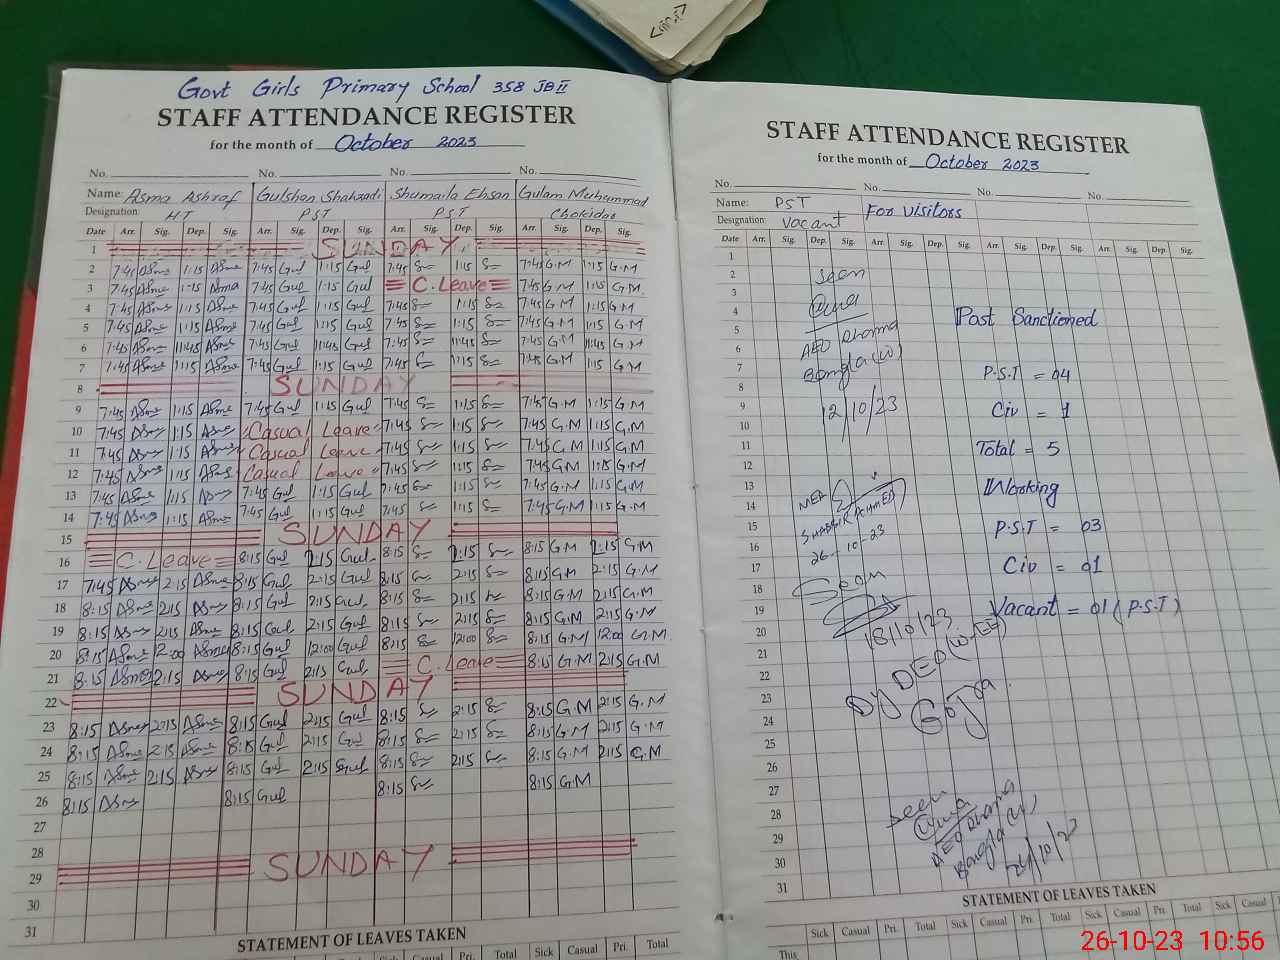 Govt Girls Primary School 358 JB II
STAFF ATTENDANCE REGISTER
for the month of October 2023
No. No. No. No.
Name: Asma Ashraf Gulshan Shahzadi Shumaila Ehsan Gulam Muhammad
Designation: HT PST PST Chokidar
Date Arr. Sig. Dep. Sig. Arr. Sig. Dep. Sig. Arr. Sig. Dep. Sig. Arr. Sig. Dep. Sig.
1 SUNDAY
2 7:45 Asma 1:15 Asma 7:45 Gul 1:15 Gul 7:45 1:15 7:45 G.M 1:15 G.M
3 7:45 Asma 1:15 Asma 7:45 Gul 1:15 Gul C.Leave 7:45 G.M 1:15 G.M
4 7:45 Asma 1:15 Asma 7:45 Gul 1:15 Gul 7:45 1:15 7:45 G.M 1:15 G.M
5 7:45 Asma 1:15 Asma 7:45 Gul 1:15 Gul 7:45 1:15 7:45 G.M 1:15 G.M
6 7:45 Asma 11:45 Asma 7:45 Gul 11:45 Gul 7:45 11:45 7:45 G.M 11:45 G.M
7 7:45 Asma 1:15 Asma 7:45 Gul 1:15 Gul 7:45 1:15 7:45 G.M 1:15 G.M
8 SUNDAY
9 7:45 Asma 1:15 Asma 7:45 Gul 1:15 Gul 7:45 1:15 7:45 G.M 1:15 G.M
10 7:45 Asma 1:15 Asma Casual Leave 7:45 1:15 7:45 G.M 1:15 G.M
11 7:45 Asma 1:15 Asma Casual Leave 7:45 1:15 7:45 G.M 1:15 G.M
12 7:45 Asma 1:15 Asma Casual Leave 7:45 1:15 7:45 G.M 1:15 G.M
13 7:45 Asma 1:15 Asma 7:45 Gul 1:15 Gul 7:45 1:15 7:45 G.M 1:15 G.M
14 7:45 Asma 1:15 Asma 7:45 Gul 1:15 Gul 7:45 1:15 7:45 G.M 1:15 G.M
15 SUNDAY
16 C.Leave 8:15 Gul 2:15 Gul 8:15 2:15 8:15 G.M 2:15 G.M
17 7:45 Asma 2:15 Asma 8:15 Gul 2:15 Gul 8:15 2:15 8:15 G.M 2:15 G.M
18 8:15 Asma 2:15 Asma 8:15 Gul 2:15 Gul 8:15 2:15 8:15 G.M 2:15 G.M
19 8:15 Asma 2:15 Asma 8:15 Gul 2:15 Gul 8:15 2:15 8:15 G.M 2:15 G.M
20 8:15 Asma 2:00 Asma 8:15 Gul 12:00 Gul 8:15 12:00 8:15 G.M 12:00 G.M
21 8:15 Asma 2:15 Asma 8:15 Gul 2:15 Gul C.Leave 8:15 G.M 2:15 G.M
22 SUNDAY
23 8:15 Asma 2:15 Asma 8:15 Gul 2:15 Gul 8:15 2:15 8:15 G.M 2:15 G.M
24 8:15 Asma 2:15 Asma 8:15 Gul 2:15 Gul 8:15 2:15 8:15 G.M 2:15 G.M
25 8:15 Asma 2:15 Asma 8:15 Gul 2:15 Gul 8:15 2:15 8:15 G.M 2:15 G.M
26 8:15 Asma 8:15 Gul 8:15 8:15 G.M
27
28
29 SUNDAY
30
31
STATEMENT OF LEAVES TAKEN
Total Sick Casual Pri. Total
STAFF ATTENDANCE REGISTER
for the month of October 2023
No. No. No. No.
Name: PST For visitors
Designation: Vacant
Date Arr. Sig. Dep. Sig. Arr. Sig. Dep. Sig. Arr. Sig. Dep. Sig. Arr. Sig. Dep. Sig.
1
2
3
4
5
6
7
8
9
10
11
12
13
14
15
16
17
18
19
20
21
22
23
24
25
26
27
28
29
30
31
Seen
AEO Dharma
Bangla (W)
12/10/23
MEA
SHABBIR AHMED
26-10-23
Seen
18/10/23
Dy DEO (W-EE)
Gojra
Seen
AEO Dharma
Bangla (W)
Post Sanctioned
P.S.T = 04
Civ = 1
Total = 5
Working
P.S.T = 03
Civ = 01
Vacant = 01 (P.S.T)
STATEMENT OF LEAVES TAKEN
Sick Casual Pri. Total Sick Casual Pri. Total Sick Casual Pri. Total Sick Casual
This
26-10-23 10:56